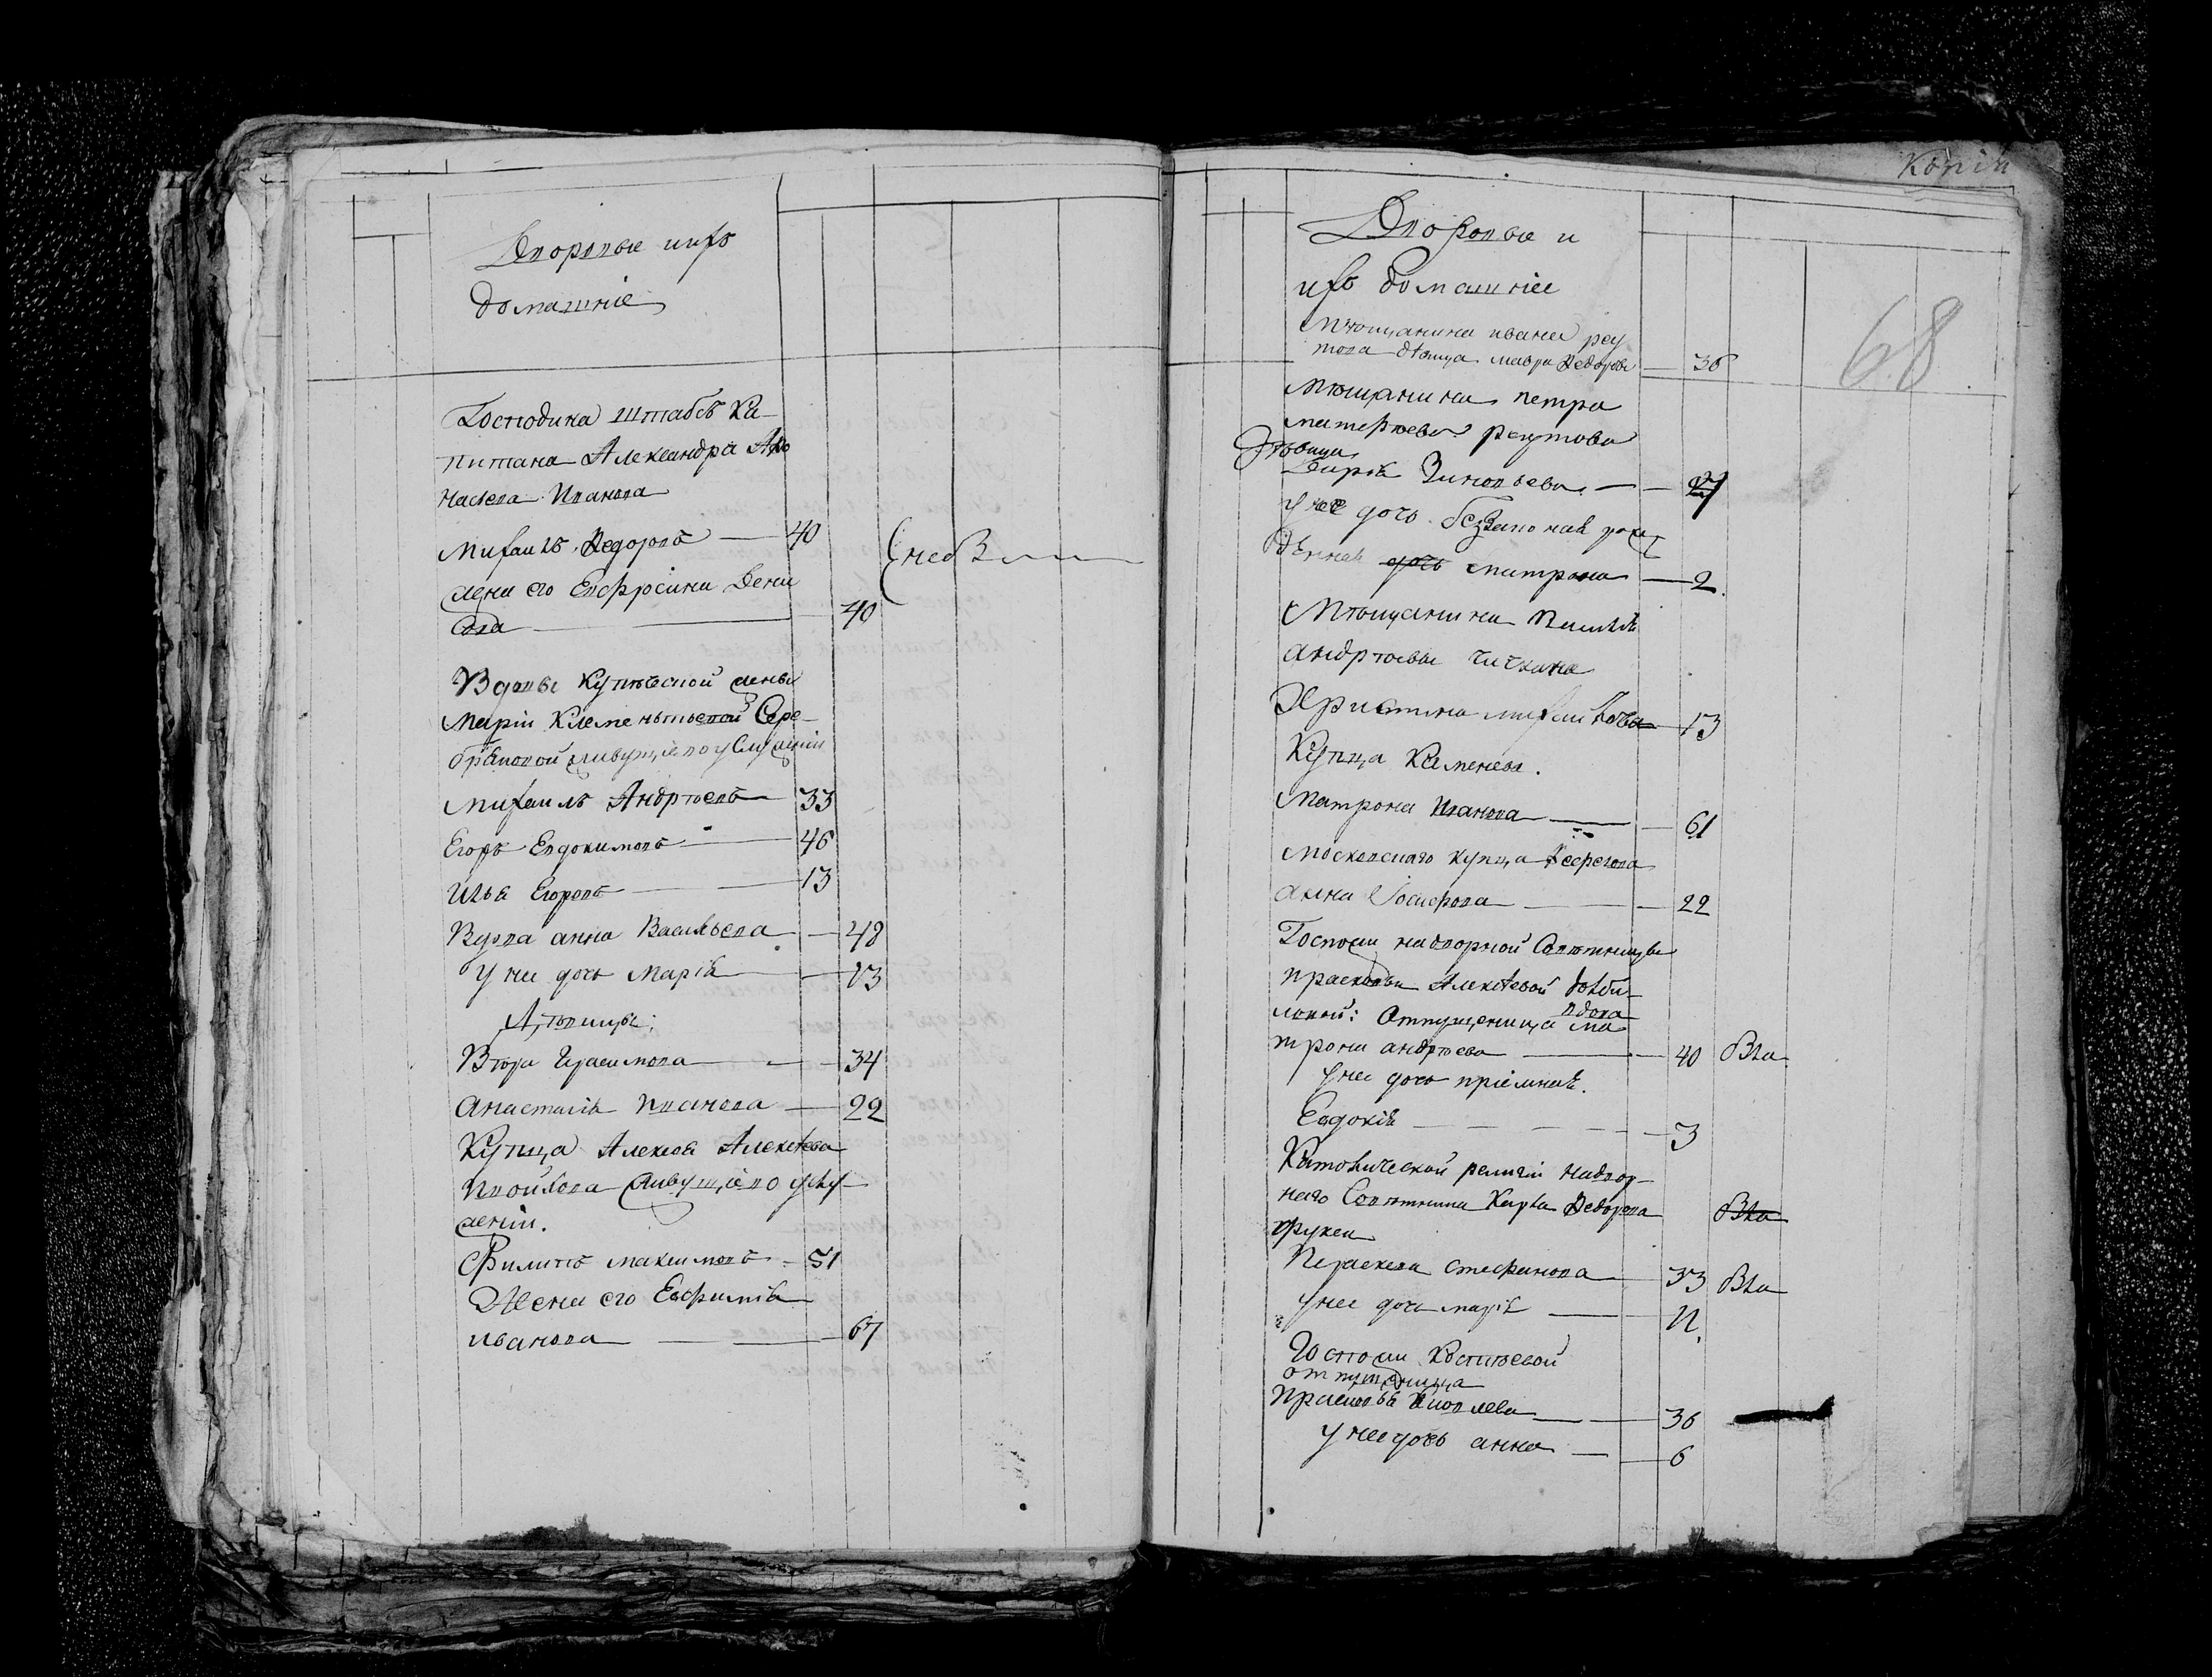 Дворовые ихъ
домашніе
Господина штабсъ Ка-
питана Александра Афо
насьева Иванова
Михаилъ Ѳедоровъ — 40
жена его Евфросинья Дени
сова — 40
Вдовы Купеческой жены
Маріи Клементьевой Сере-
бряковой живущіе по услуженіи
Михаилъ Андрѣевъ — 33
Егоръ Евдокимовъ — 46
Илья Егоровъ — 13
Вдова анна Васильева — 48
У ни дочь Марія — 13
Дѣвицы:
Вѣра Герасимова — 34
Анастасія Иванова — 22
Купца Алексея Алексѣева
живущіе по услу-
женіи.
Филипъ Максимовъ — 51
Жена его Евфимія
иванова — 67
Копія
68
Дворовые и
ихъ домашніе
Мѣщанина ивана реу
това дѣвица мавра Ѳедорова — 36
Мѣщанина петра
матвѣева реутова
Дѣвица
Дарія Зиновьева — 27
У нее дочь беззаконная рож
денная дочь матрона — 2
Мѣщанина Василія
андрѣева чичкина
Христина михайлова — 13
Купца Каменева.
Матрона Иванова — 61
московскаго купца
анна Іосифова — 22
Госпожи надворной Совѣтницы
прасковьи Алексѣевой
Отпущеница вдова ма
трона андрѣева — 40
У нее дочь пріемная.
Евдокія — 3
Католической религіи надвор-
наго Совѣтника Карла Ѳедорова
Прасковья Стефанова — 33
У нее дочь марія — 11
Госпожи
отпущеница
Прасковья Яковлева — 36
У нее дочь анна — 6